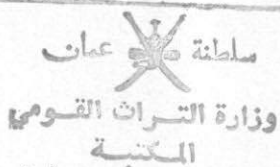 سلطنة عمان
وزارة التراث القومي
المكتبة